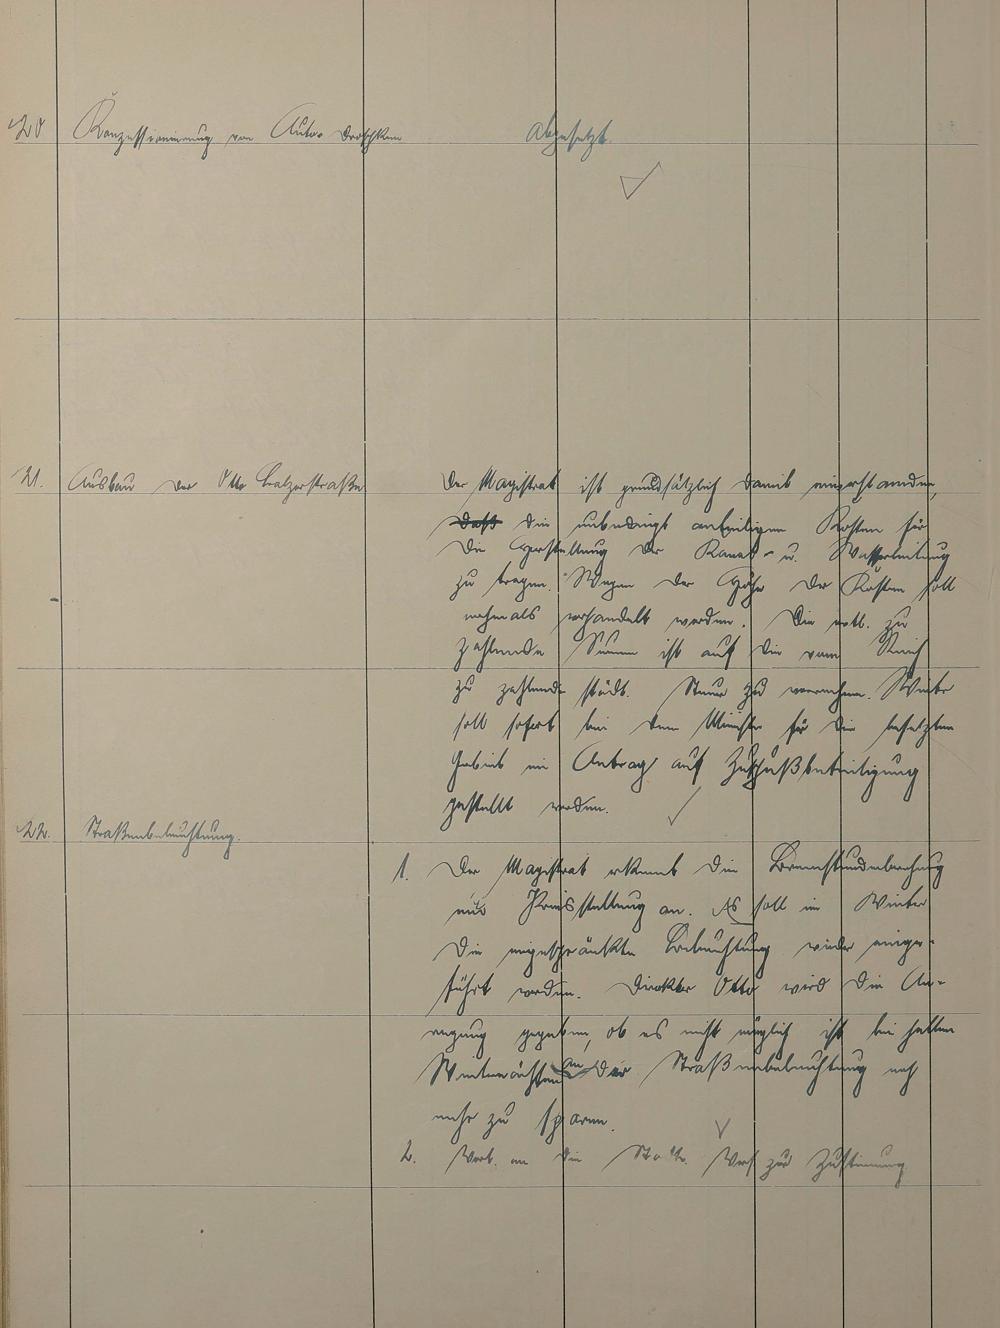 20 Konzessionierung von Auto-Droschken abgesetzt.
21. Ausbau der Otto Balzerstraße
Der Magistrat ist grundsätzlich damit einverstanden,
daß die unbedingt anteiligen Kosten für
die Herstellung der Kanal- u. Wasserleitung
zu tragen. Wegen der Höhe der Kosten soll
nochmals verhandelt werden. Die evtl. zu
zahlende Summe ist auf die vom Reich
zu zahlende städt. Steuer zu verrechnen. Weiter
soll sofort bei dem Minister für die besetzten
Gebiete ein Antrag auf Zuschußbeteiligung
gestellt werden.
22. Straßenbeleuchtung.
1. Der Magistrat erkennt die Brennstundenberechnung
und Preisstellung an. Es soll im Winter
die eingeschränkte Beleuchtung wieder einge-
führt werden. Direktor Otto wird die An-
regung gegeben, ob es nicht möglich ist bei hellen
Winternächten an der Straßenbeleuchtung noch
mehr zu sparen.
2. Vorl. an die Stadtv. Vers. zur Zustimmung